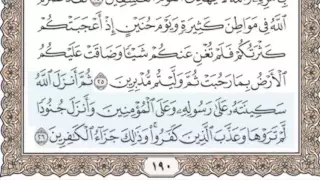 ٱللَّهُ فِى مَوَاطِنَ كَثِيرَةٍ وَيَوْمَ حُنَيْنٍ إِذْ أَعْجَبَتْكُمْ
كَثْرَتُكُمْ فَلَمْ تُغْنِ عَنكُمْ شَيْـًٔا وَضَاقَتْ عَلَيْكُمُ
ٱلْأَرْضُ بِمَا رَحُبَتْ ثُمَّ وَلَّيْتُم مُّدْبِرِينَ ٢٥ ثُمَّ أَنزَلَ ٱللَّهُ
سَكِينَتَهُۥ عَلَىٰ رَسُولِهِۦ وَعَلَى ٱلْمُؤْمِنِينَ وَأَنزَلَ جُنُودًا
لَّمْ تَرَوْهَا وَعَذَّبَ ٱلَّذِينَ كَفَرُوا۟ وَذَٰلِكَ جَزَآءُ ٱلْكَـٰفِرِينَ ٢٦
١٩٠